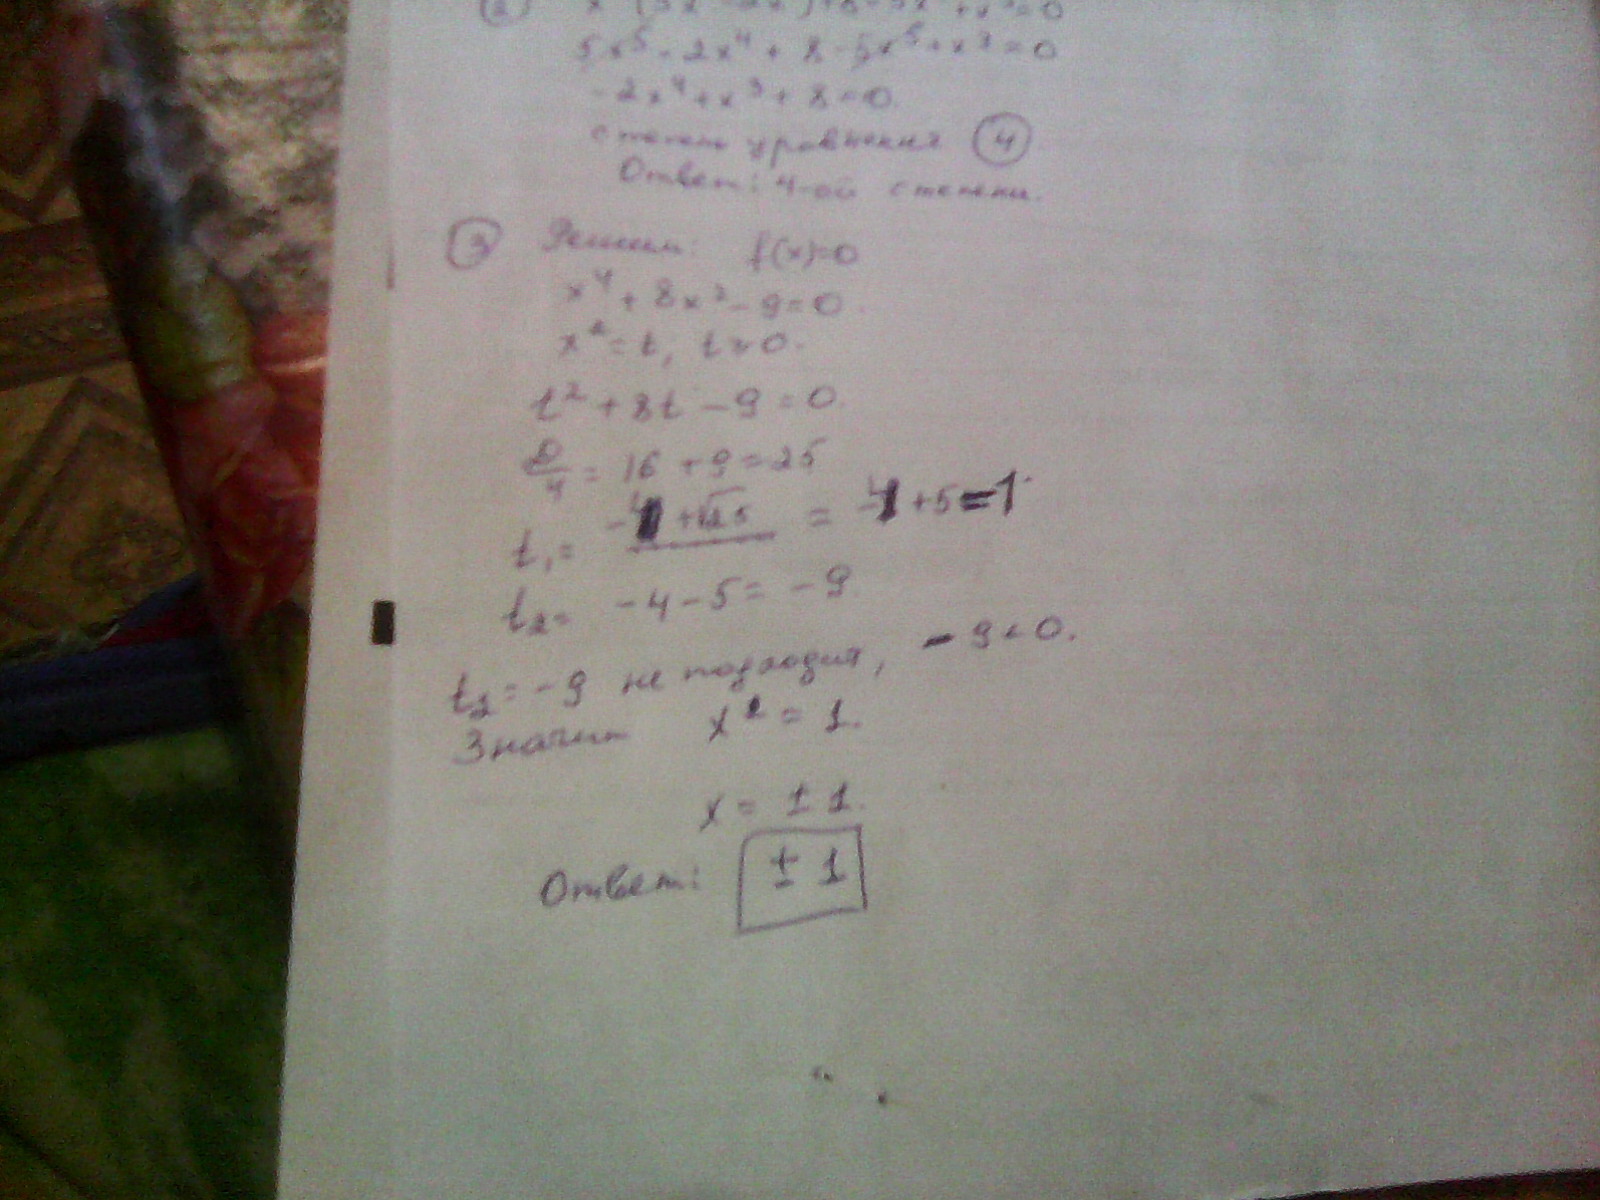 5x⁵ - 2x⁴ + 8 - 5x⁵ + x³ = 0
-2x⁴ + x³ + 8 = 0.
степень уравнения ④
Ответ: 4-ой степени.
③ Решим: f(x)=0
x⁴ + 8x² - 9 = 0.
x² = t, t > 0.
t² + 8t - 9 = 0.
D/4 = 16 + 9 = 25
t₁ = -4 + √25 = -4 + 5 = 1.
t₂ = -4 - 5 = -9.
t₂ = -9 не подходит, -9 < 0.
Значит x² = 1.
x = ± 1.
Ответ: ± 1